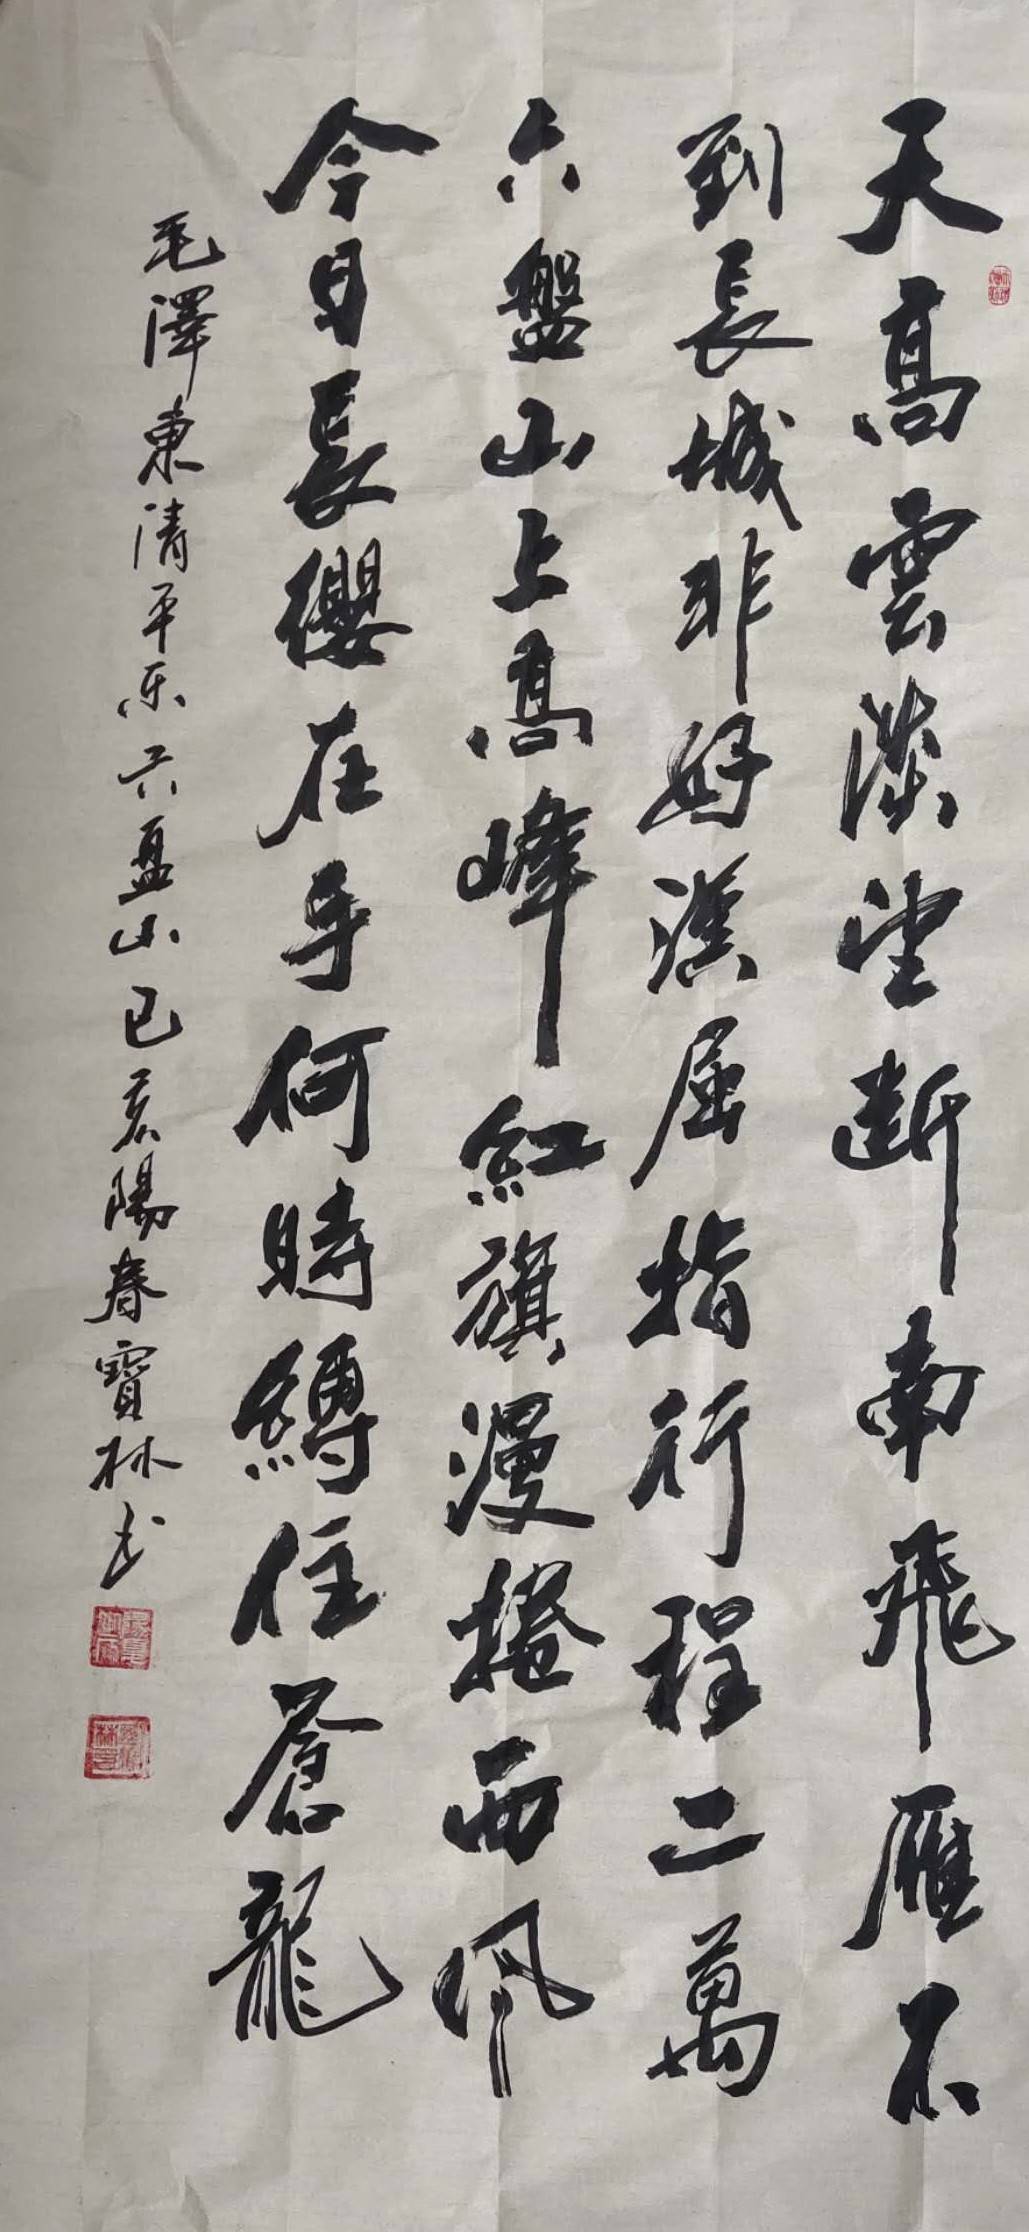 天高雲淡望断南飛雁不
到長城非好漢屈指行程二萬
六盤山上高峰紅旗漫捲西風
今日長纓在手何時縛住蒼龍
毛澤東清平乐六盘山己亥陽春寶林书